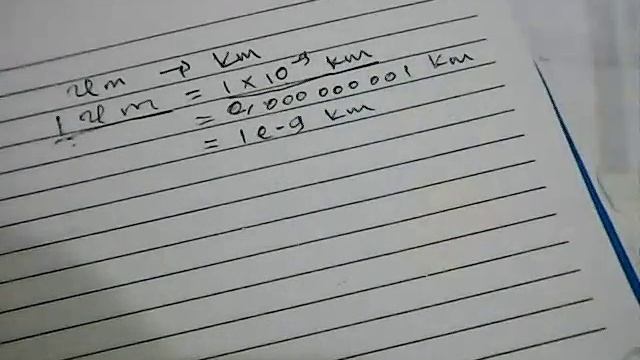 um → km
1 um = 1 × 10⁻⁹ km
= 0,000 000 001 km
= 1e-9 km